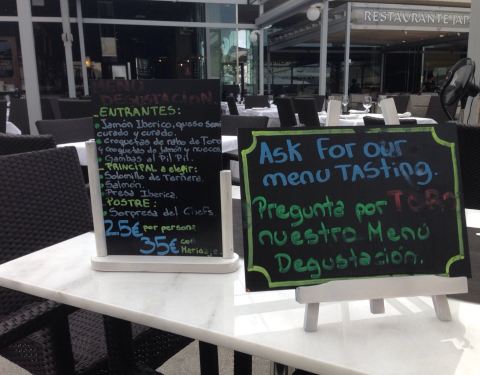 RESTAURANTE JAP
MENÚ
DEGUSTACION
ENTRANTES:
Jamón Iberico, queso semi
curado y curado.
Croquetas de rabo de Toro
y croquetas de Jamón y nueces
Gambas al Pil Pil.
PRINCIPAL a elegir:
Solomillo de Ternera.
Salmón.
Presa Iberica.
POSTRE:
Sorpresa del Chefs
25€ por persona
35€ con
Maridaje
Ask For our
menu TAsting.
Pregunta por
nuestro Menú
Degustación.